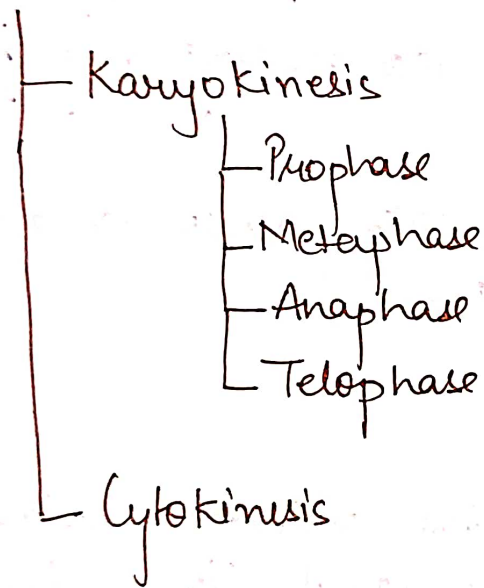 Karyokinesis
Prophase
Metaphase
Anaphase
Telophase
Cytokinesis